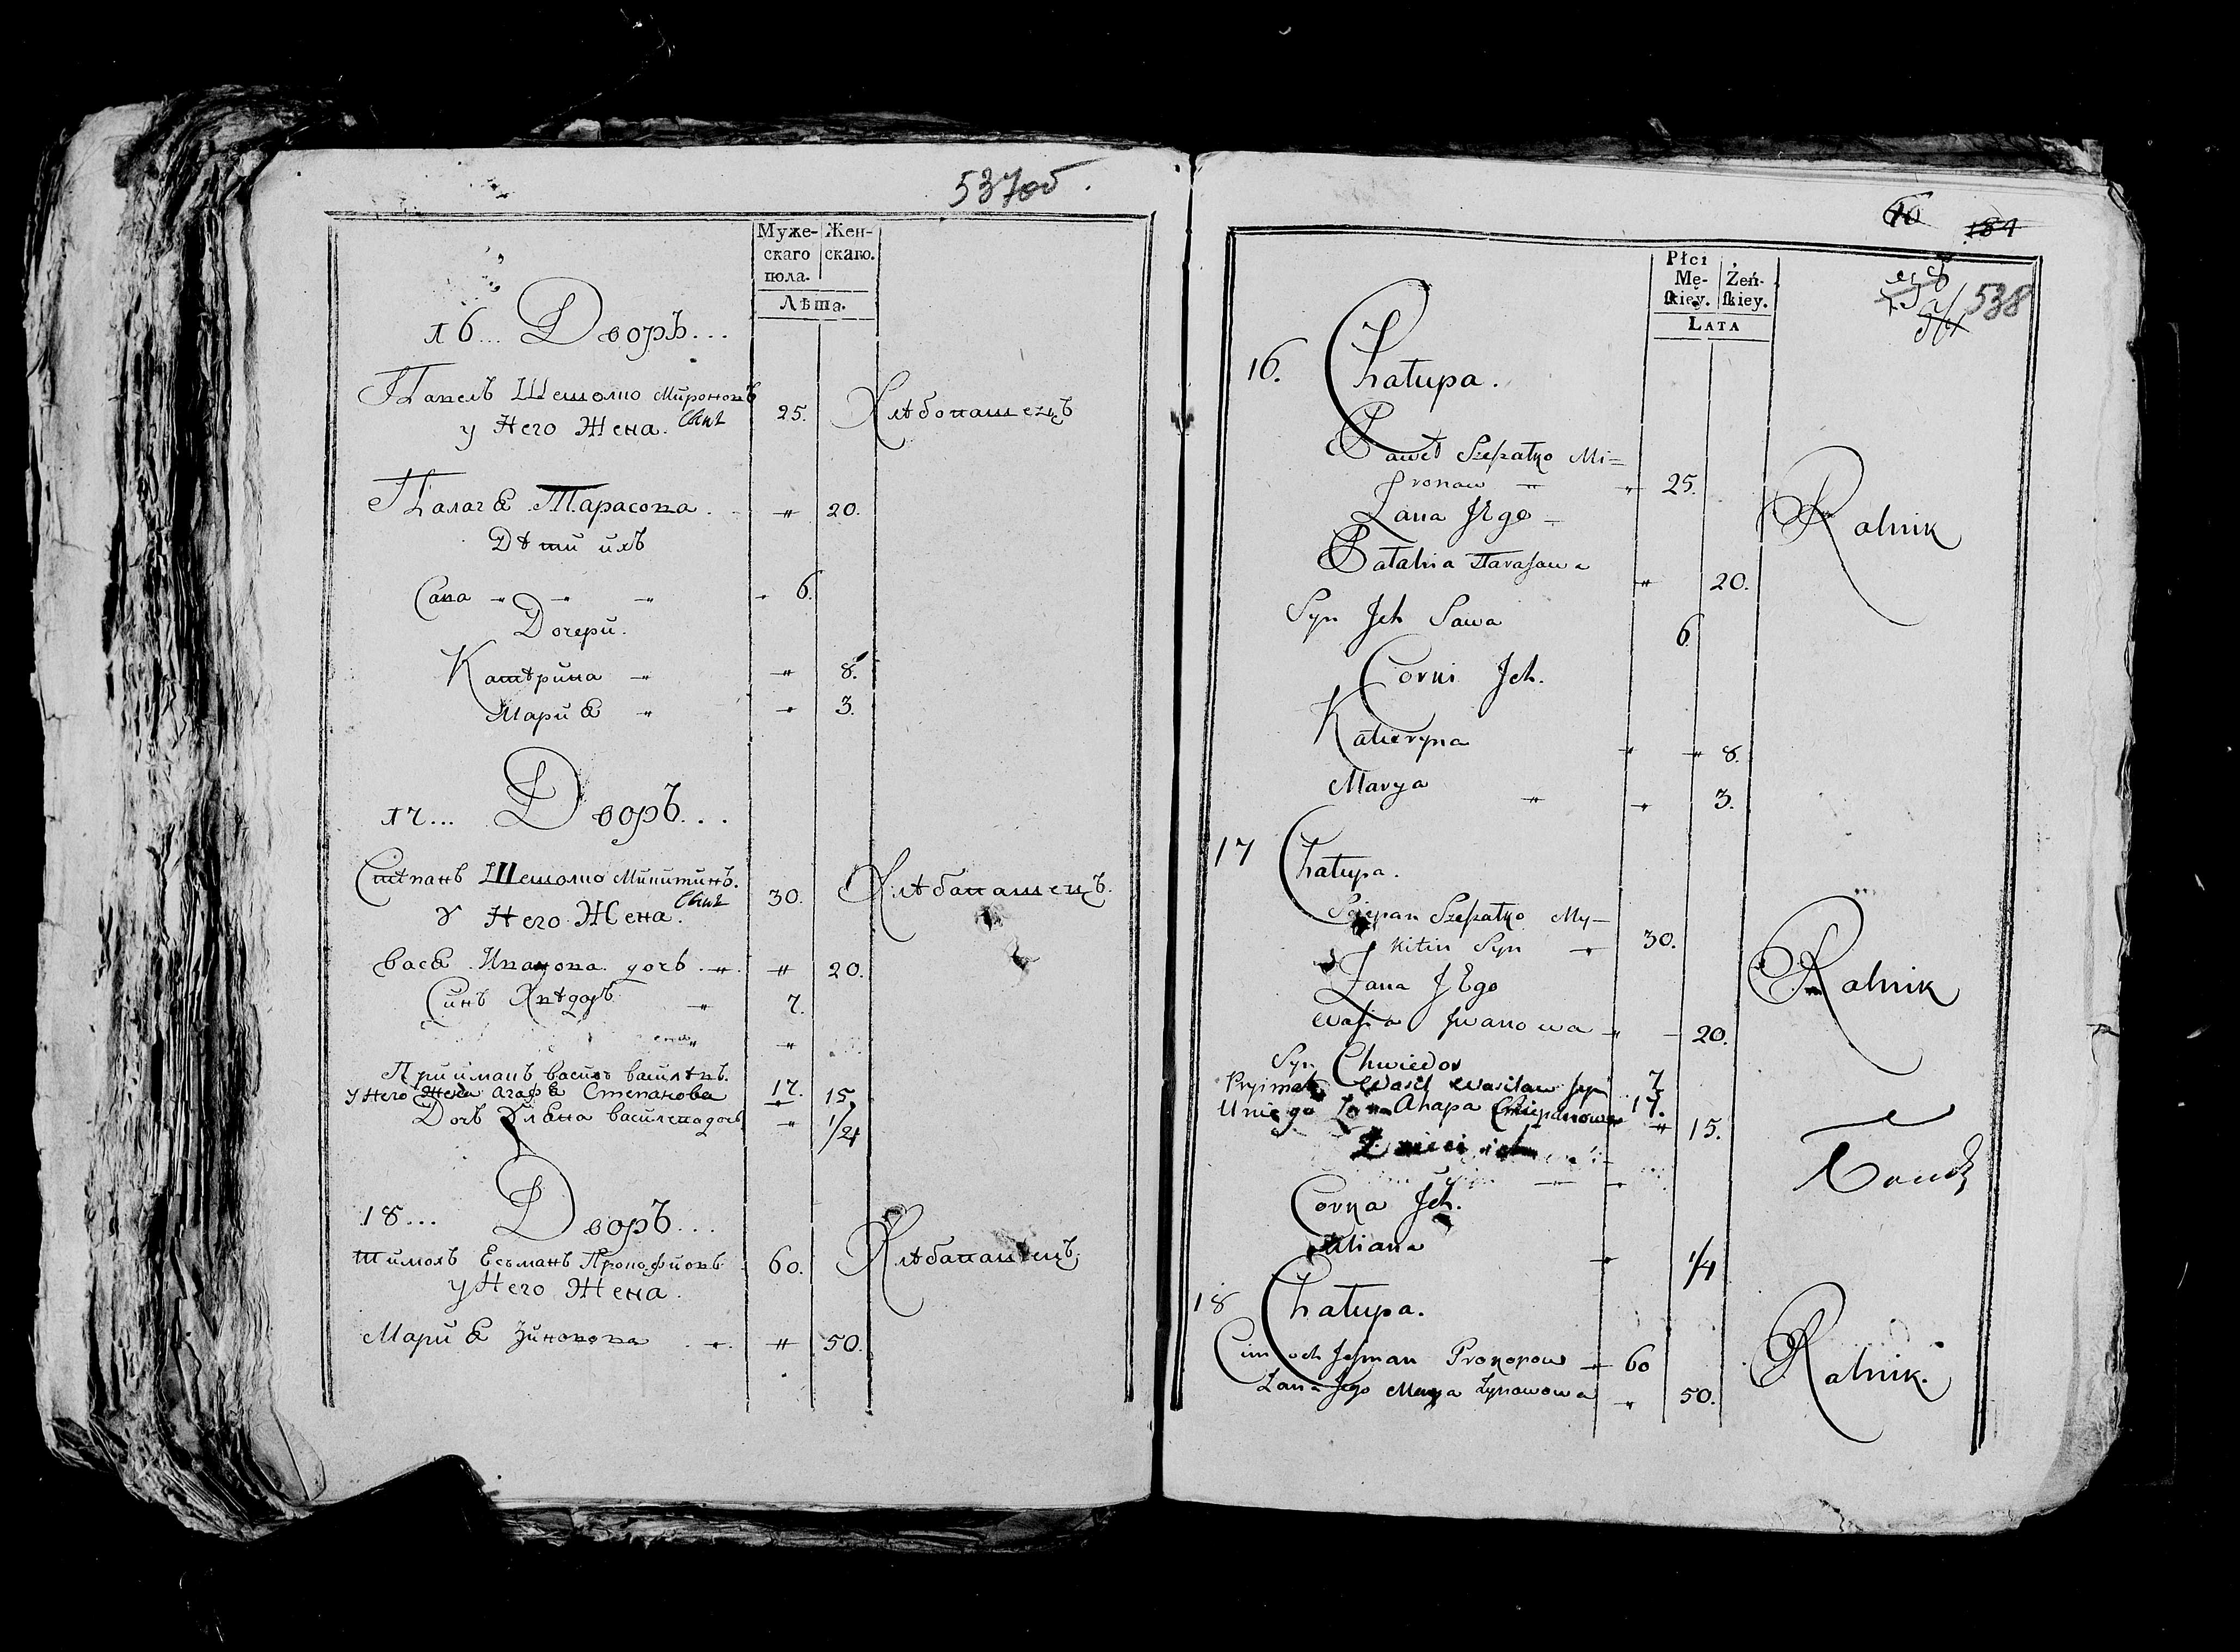 537об.
Муже-
скаго
пола.
Жен-
скаго.
Лѣта.
16... Дворъ...
Павелъ Шешолко Мироновъ
Синъ
25.
Хлѣбопашецъ
у Него Жена.
Палагѣ Тарасова " 20.
Дѣти ихъ
Сава " " " 6.
Дочери.
Катѣрина " " 8.
Мариѣ " " 3.
17... Дворъ...
Стѣпанъ Шешолко Микитинъ.
Синъ
30.
Хлѣбапашецъ.
У Него Жена.
Васѣ Иванова дочь " " 20.
Синъ Хвѣдоръ " 7.
Прииманъ Василь Васильевъ. 17.
у Него Жена Агафѣ Степанова 15.
Дочь Улѣна Василева дочь " 1/4
18... Дворъ...
Тимохъ Есьманъ Прокофиовъ 60. Хлѣбапашецъ.
у Него Жена.
Мариѣ Зиновова " " 50.
10
184
538
Płci
Mę-
ſkiey.
Żeń-
ſkiey.
LATA
16. Chałupa.
Paweł Szeszałko Mi=
ronaw " " 25.
Ratnik
Żana Jego
Patalnia Tarasawa " 20.
Syn Jch Sawa 6
Corki Jch.
Katieryna " " 8.
Marya " " 3.
17 Chałupa.
Sciepan Szeszałko My-
kitin Syn " 30.
Ratnik
Żana Jego
Wasia Jwanowa " 20.
Syn Chwiedor 7
Pryimak Wasil Wasilaw syn 17.
U niego Żona Ahapa Sciepanowa " 15.
Corka Jch.
Uliana " 1/4
18 Chałupa.
Cimoch Jesman Prokopow " 60
Ratnik.
Żana Jego Marya Zynowowa " 50.